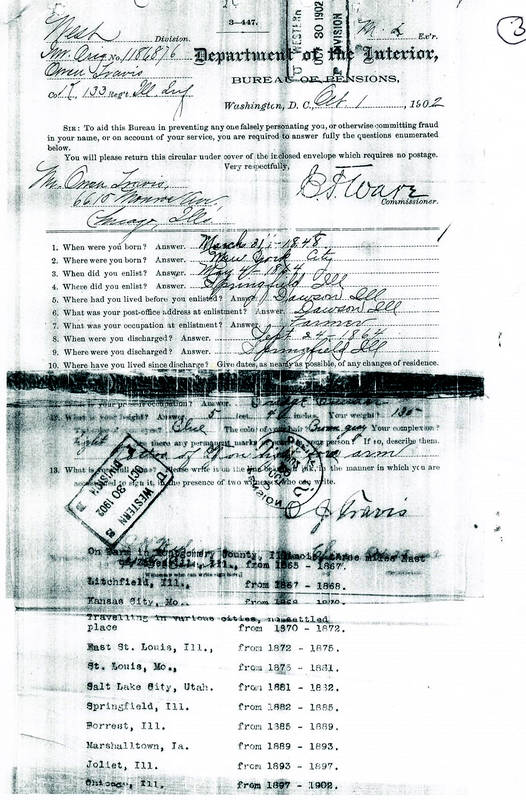 3—447.
West Division.
Inv. Orig. No. 1186876
Owen Travis
Co. K, 133 Regt. Ill. Inf
WESTERN
OCT 30 1902
DIVISION
Ex'r.
3
Department of the Interior,
BUREAU OF PENSIONS,
Washington, D. C., Oct 1, 1902
SIR: To aid this Bureau in preventing any one falsely personating you, or otherwise committing fraud
in your name, or on account of your service, you are required to answer fully the questions enumerated
below.
You will please return this circular under cover of the inclosed envelope which requires no postage.
Very respectfully,
Mr. Owen Travis,
6610 Monroe Ave.
Chicago, Ills
E F Ware
Commissioner.
1. When were you born? Answer. March 31st 1848
2. Where were you born? Answer. New York City
3. When did you enlist? Answer. May 4th 1864
4. Where did you enlist? Answer. Springfield Ill
5. Where had you lived before you enlisted? Answer. Dawson Ill
6. What was your post-office address at enlistment? Answer. Dawson Ill
7. What was your occupation at enlistment? Answer. Farmer
8. When were you discharged? Answer. Sept 24 1864
9. Where were you discharged? Answer. Springfield Ill
10. Where have you lived since discharge? Give dates, as nearly as possible, of any changes of residence.
your present occupation? Answer.
12. What is your height? Answer. 5 feet, inches. Your weight? 130
Blue The color of your hair? Your complexion?
Light Are there any permanent marks your person? If so, describe them.
arm
13. What is name? Please write it on the line in ink, in the manner in which you are
accustomed to sign it, in the presence of two witnesses who can write.
WESTERN
OCT 30 1902
DIVISION
O J Travis
On Farm in Montgomery County, Illinois, three miles East
Ill., from 1865 - 1867.
Litchfield, Ill., from 1867 - 1868.
Kansas City, Mo., from 1868 1870
Travelling in various cities, no settled
place from 1870 - 1872.
East St. Louis, Ill., from 1872 - 1875.
St. Louis, Mo., from 1875 - 1881.
Salt Lake City, Utah. from 1881 - 1882.
Springfield, Ill. from 1882 - 1885.
Forrest, Ill. from 1885 - 1889.
Marshalltown, Ia. from 1889 - 1893.
Joliet, Ill. from 1893 - 1897.
Chicago, Ill. from 1897 - 1902.